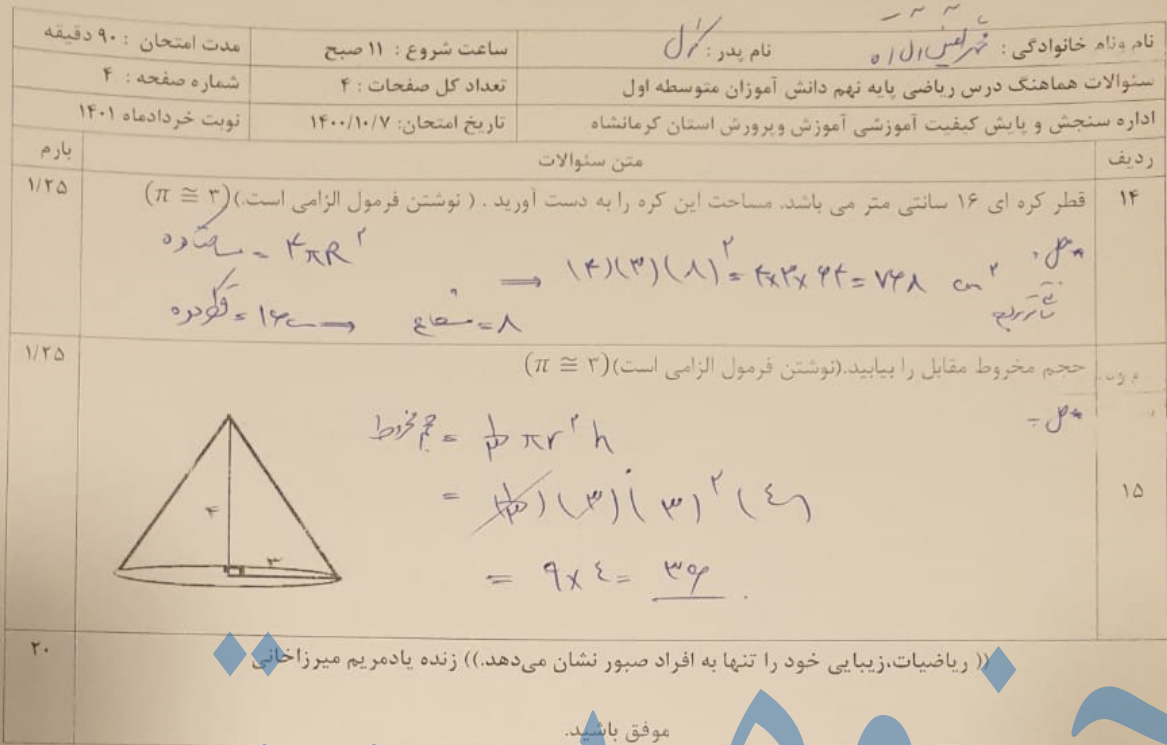 نام ونام خانوادگی : نام پدر : ساعت شروع : ۱۱ صبح مدت امتحان : ۹۰ دقیقه
سئوالات هماهنگ درس ریاضی پایه نهم دانش آموزان متوسطه اول تعداد کل صفحات : ۴ شماره صفحه : ۴
اداره سنجش و پایش کیفیت آموزشی آموزش وپرورش استان کرمانشاه تاریخ امتحان: ۱۴۰۰/۱۰/۷ نوبت خردادماه ۱۴۰۱
ردیف متن سئوالات بارم
۱۴ قطر کره ای ۱۶ سانتی متر می باشد. مساحت این کره را به دست آورید . ( نوشتن فرمول الزامی است.)(π ≅ ۳) ۱/۲۵
مساحت کره = ۴πR²
⟹ (۴)(۳)(۸)² = ۴×۳×۶۴ = ۷۶۸ cm²
قطر کره = ۱۶ ⟹ شعاع = ۸
حجم مخروط مقابل را بیابید.(نوشتن فرمول الزامی است)(π ≅ ۳) ۱/۲۵
حل =
حجم مخروط = ۱/۳ πr²h
= (۱/۳)(۳)(۳)²(٤)
۱۵
= ۹×٤ = ۳۶
۴
۳
(( ریاضیات،زیبایی خود را تنها به افراد صبور نشان می‌دهد.)) زنده یادمریم میرزاخانی ۲۰
موفق باشید.